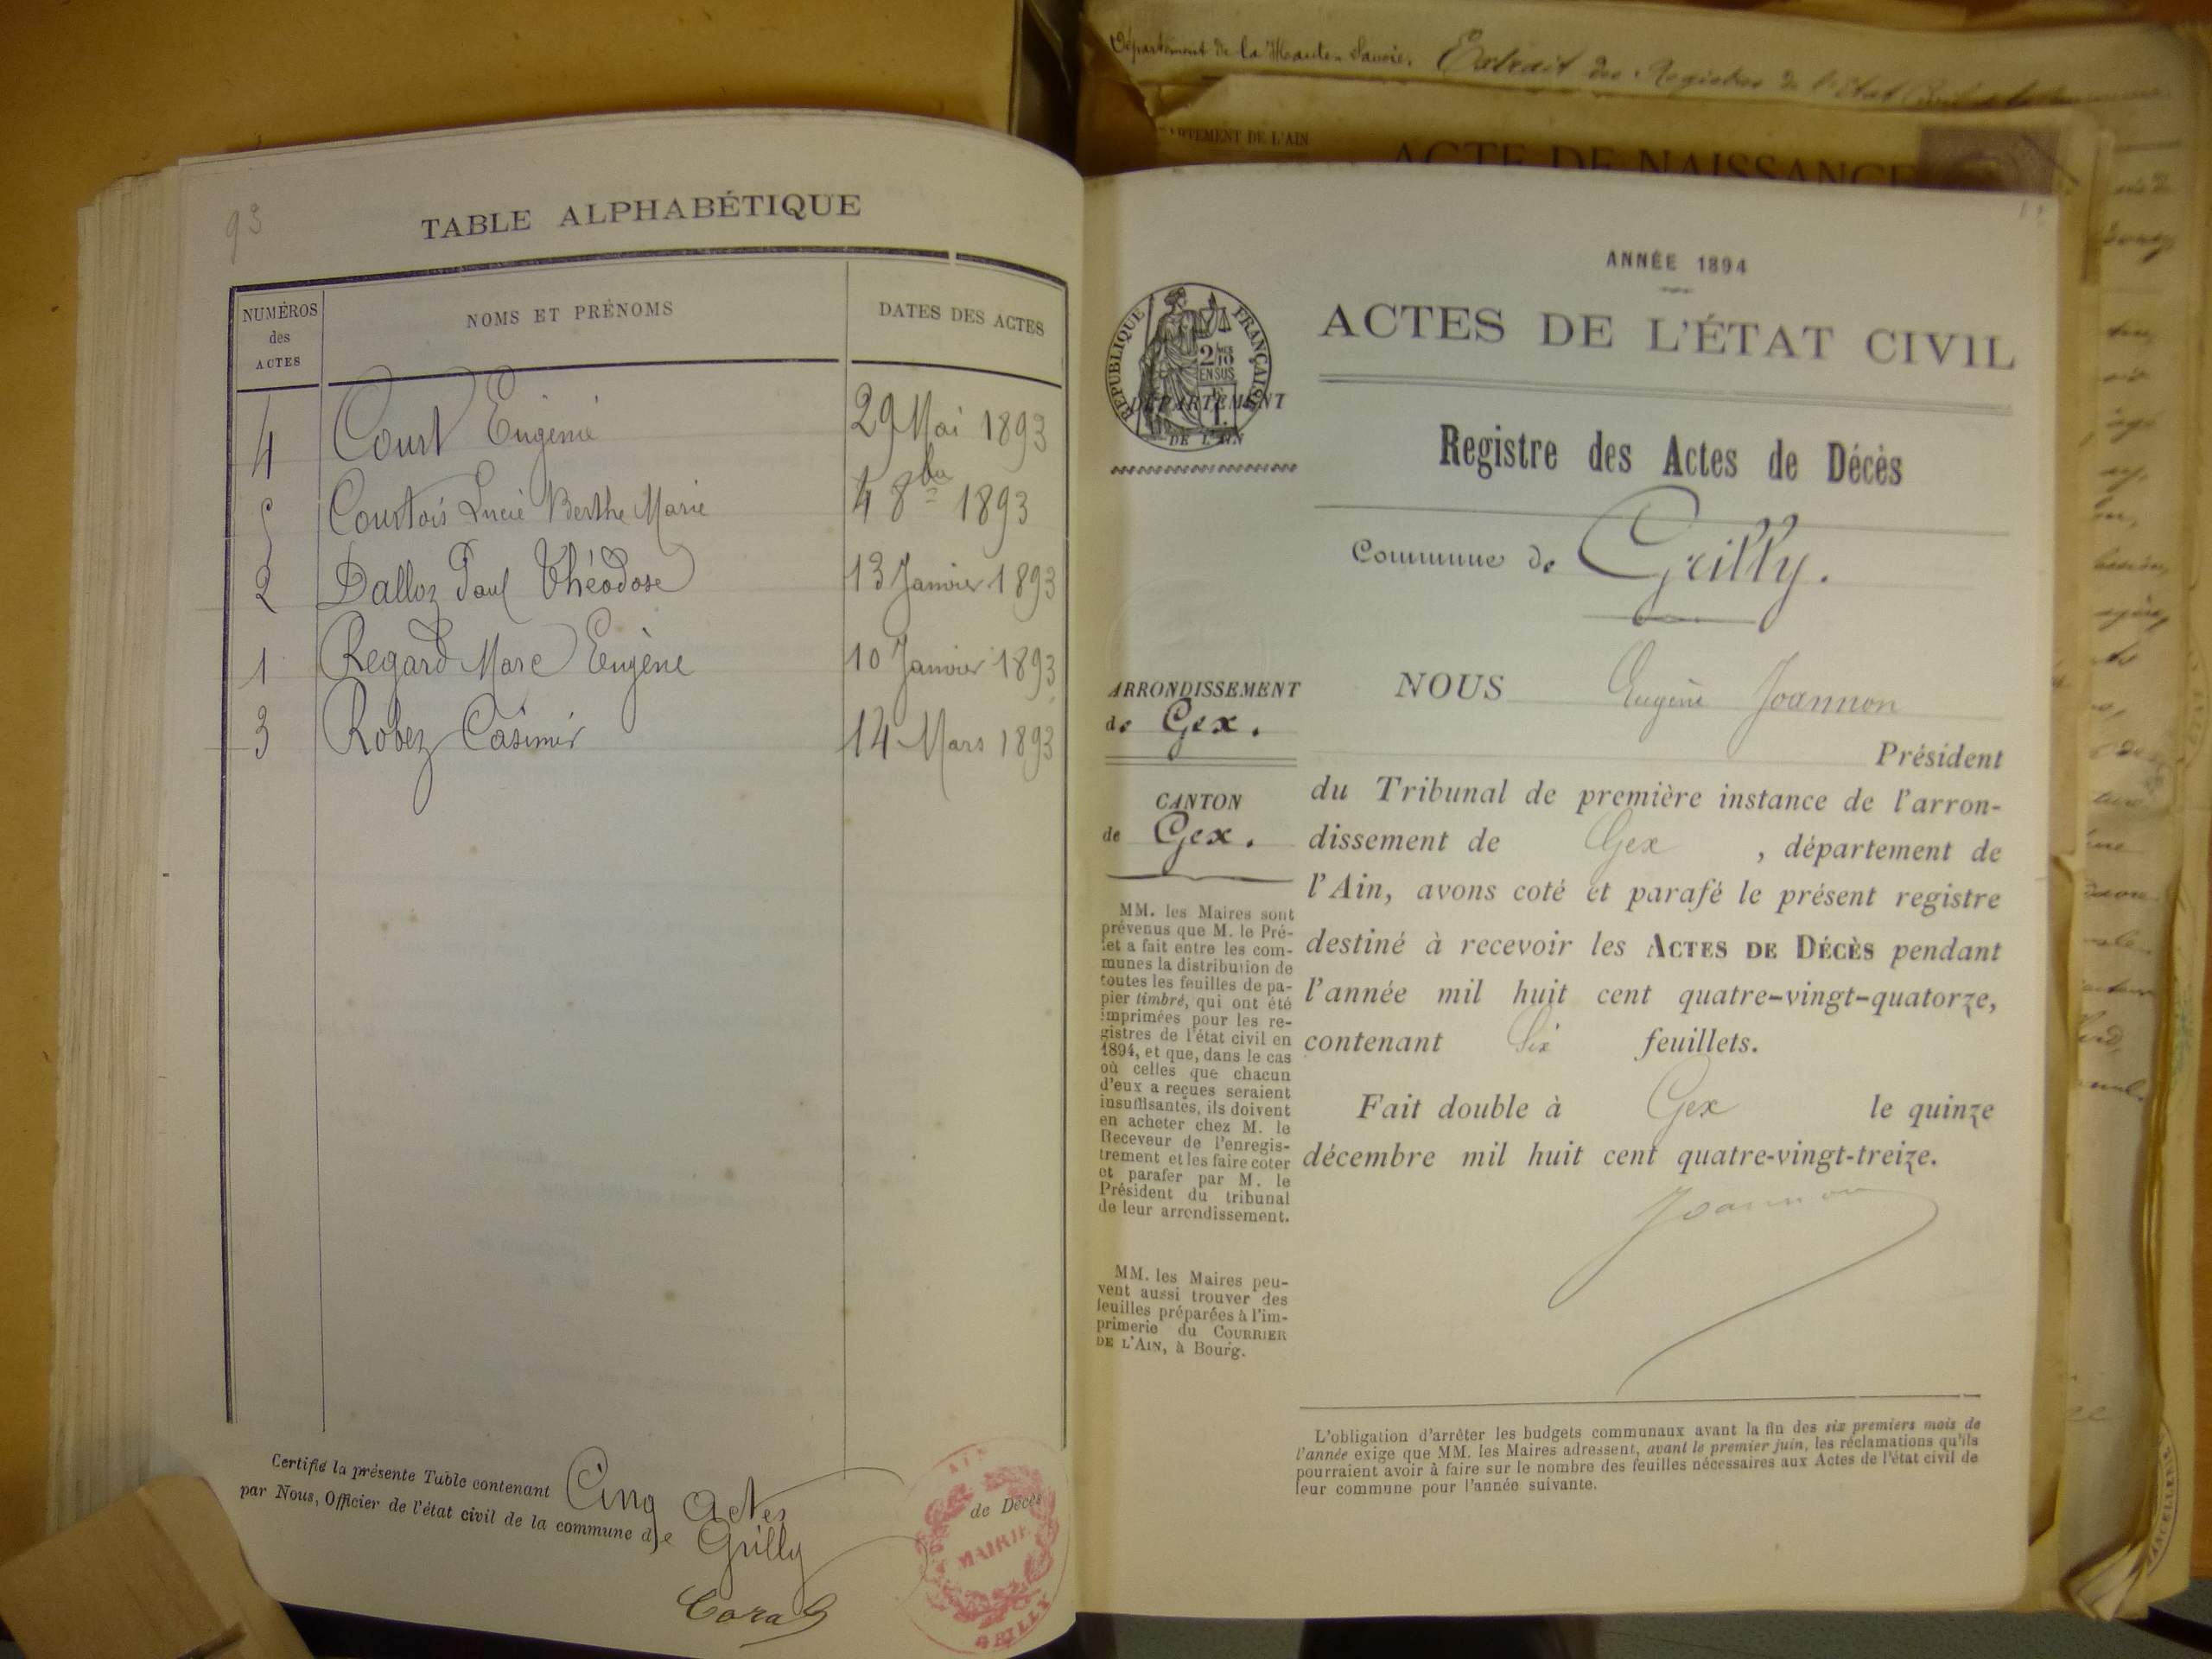 Département de la Haute-Savoie. Extrait des Registres de l'Etat Civil
DÉPARTEMENT DE L'AIN
ACTE DE NAISSANCE
93
TABLE ALPHABÉTIQUE
NUMÉROS des ACTES NOMS ET PRÉNOMS DATES DES ACTES
4 Court Eugénie 29 Mai 1893
5 Courtois Lucie Berthe Marie 4 8bre 1893
2 Dalloz Paul Théodose 13 Janvier 1893
1 Regard Marc Eugène 10 Janvier 1893
3 Robez Casimir 14 Mars 1893
Certifié la présente Table contenant Cinq Actes de Décès
par Nous, Officier de l'état civil de la commune de Grilly
AIN
MAIRIE
GRILLY
ANNÉE 1894
ACTES DE L'ÉTAT CIVIL
RÉPUBLIQUE FRANÇAISE
2/10 EN SUS
DÉPARTEMENT
DE L'AIN
Registre des Actes de Décès
Commune de Grilly.
ARRONDISSEMENT
de Gex.
CANTON
de Gex.
MM. les Maires sont
prévenus que M. le Pré-
fet a fait entre les com-
munes la distribution de
toutes les feuilles de pa-
pier timbré, qui ont été
imprimées pour les re-
gistres de l'état civil en
1894, et que, dans le cas
où celles que chacun
d'eux a reçues seraient
insuffisantes, ils doivent
en acheter chez M. le
Receveur de l'enregis-
trement et les faire coter
et parafer par M. le
Président du tribunal
de leur arrondissement.
MM. les Maires peu-
vent aussi trouver des
feuilles préparées à l'im-
primerie du COURRIER
DE L'AIN, à Bourg.
NOUS Eugène Joannon
Président
du Tribunal de première instance de l'arron-
dissement de Gex , département de
l'Ain, avons coté et parafé le présent registre
destiné à recevoir les ACTES DE DÉCÈS pendant
l'année mil huit cent quatre-vingt-quatorze,
contenant Six feuillets.
Fait double à Gex le quinze
décembre mil huit cent quatre-vingt-treize.
Joannon
L'obligation d'arrêter les budgets communaux avant la fin des six premiers mois de
l'année exige que MM. les Maires adressent, avant le premier juin, les réclamations qu'ils
pourraient avoir à faire sur le nombre des feuilles nécessaires aux Actes de l'état civil de
leur commune pour l'année suivante.